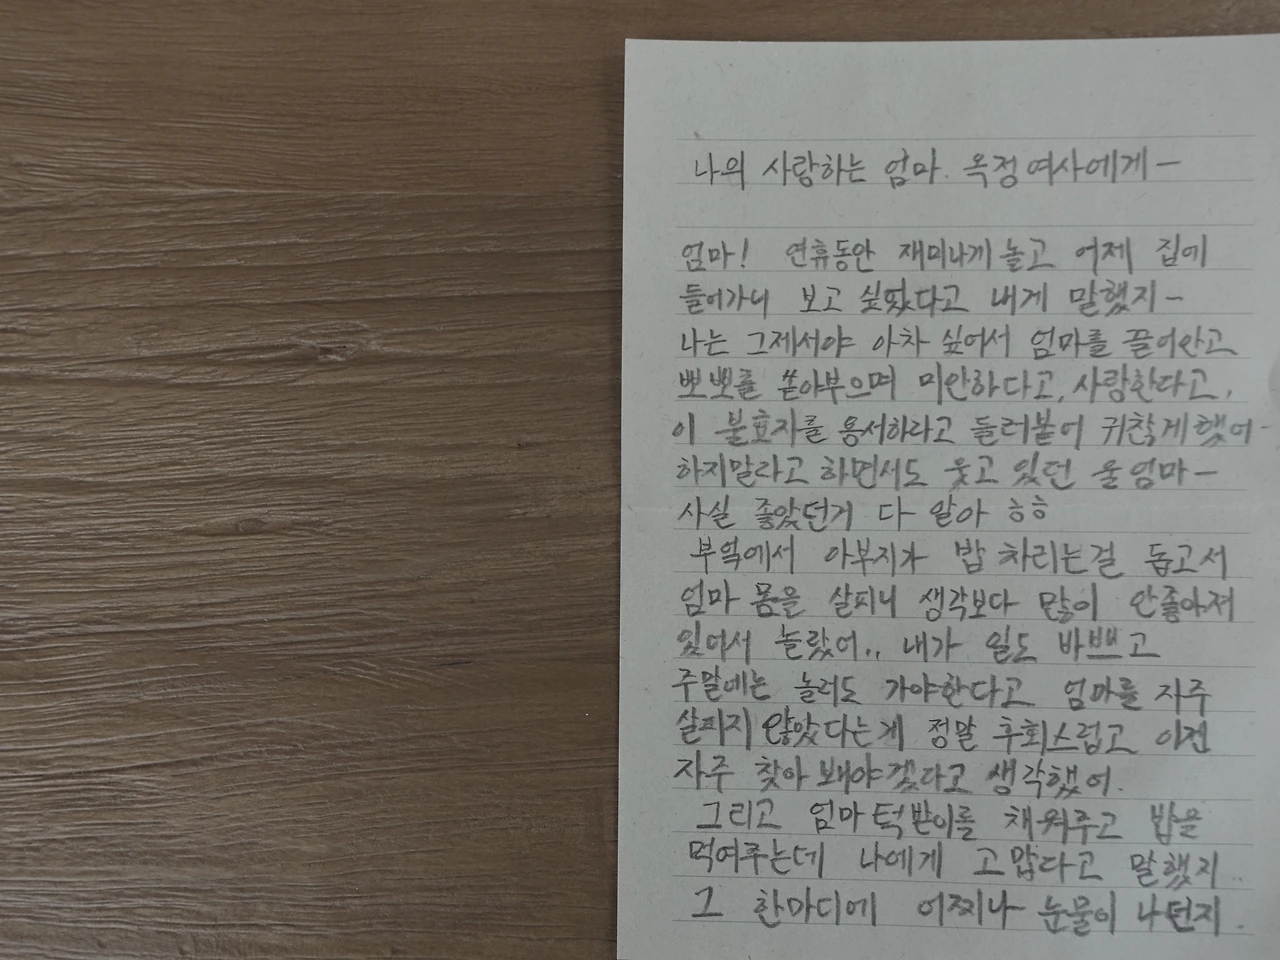 나의 사랑하는 엄마. 옥정여사에게-
엄마! 연휴동안 재미나게 놀고 어제 집에
들어가니 보고 싶었다고 내게 말했지-
나는 그제서야 아차 싶어서 엄마를 끌어안고
뽀뽀를 쏟아부으며 미안하다고, 사랑한다고,
이 불효자를 용서하라고 들러붙어 귀찮게했어-
하지말라고 하면서도 웃고 있던 울엄마-
사실 좋았던거 다 알아 ㅎㅎ
부엌에서 아부지가 밥 차리는걸 돕고서
엄마 몸을 살피니 생각보다 많이 안좋아져
있어서 놀랐어.. 내가 일도 바쁘고
주말에는 놀러도 가야한다고 엄마를 자주
살피지 않았다는게 정말 후회스럽고 이젠
자주 찾아 봬야겠다고 생각했어.
그리고 엄마 턱받이를 채워주고 밥을
먹여주는데 나에게 고맙다고 말했지..
그 한마디에 어찌나 눈물이 나던지.